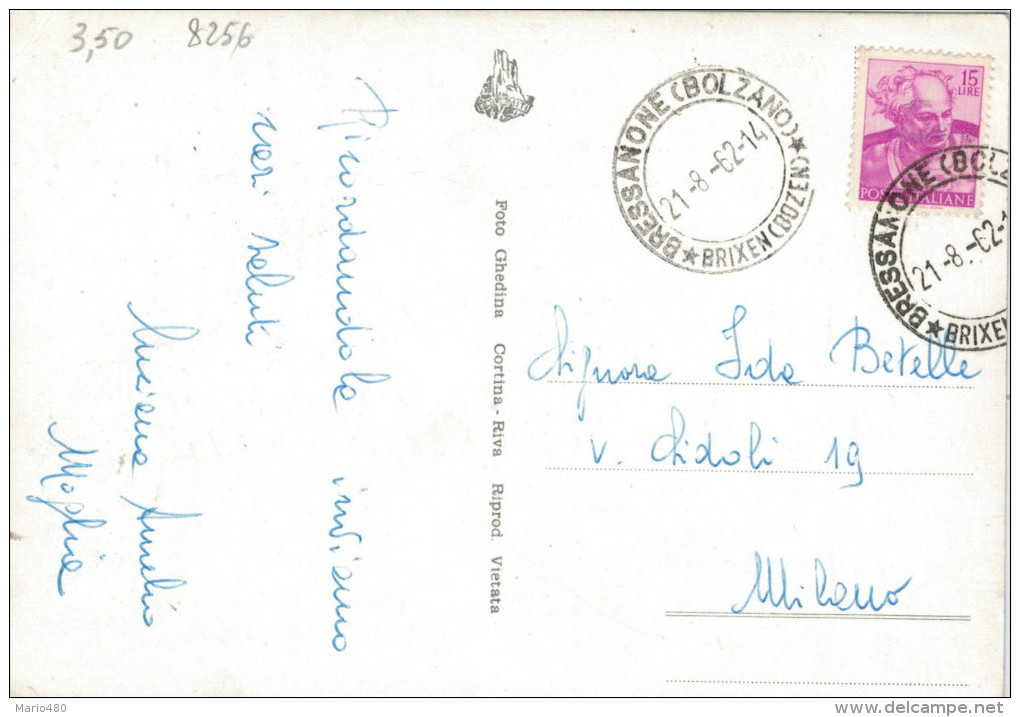 3,50 8256
Ricordandola inviamo
cari saluti
Luciana Amelio
Maglia
Foto Ghedina Cortina - Riva Riprod. Vietata
BRESSANONE (BOLZANO)
21-8.-62-14
★ BRIXEN (BOZEN) ★
15
LIRE
POSTE ITALIANE
BRESSANONE (BOLZ
21-8.-62-1
★ BRIXEN
Signora Ida Betelle
v. Sidoli 19
Milano
Mario480
delcampe.net